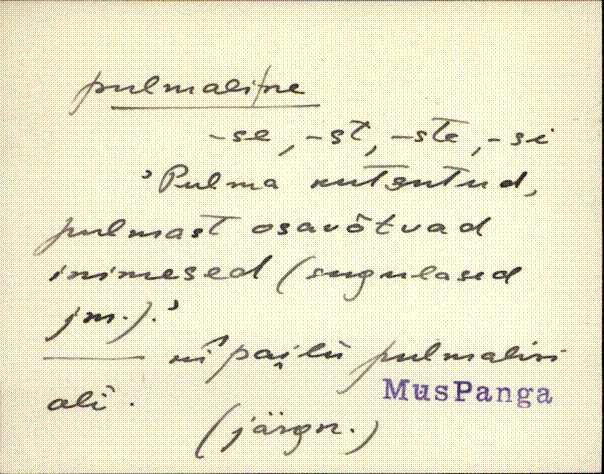 pulmali/ne
-se, -st, -ste, -si
'Pulma kutsutud,
pulmast osavõtvad
inimesed (sugulased
jm.).'
pulmalisi
ali.
MusPanga
(järgn.)